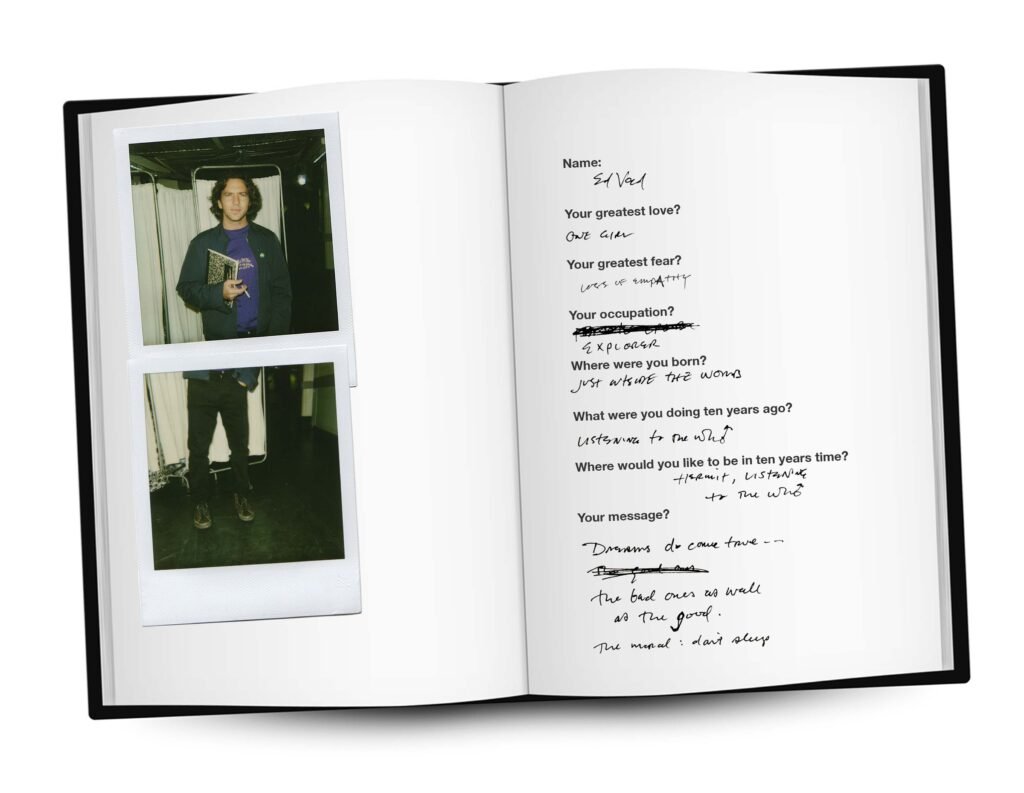 Name:
Ed Ved
Your greatest love?
ONE GIRL
Your greatest fear?
LOSS OF EMPATHY
Your occupation?
EXPLORER
Where were you born?
JUST OUTSIDE THE WOMB
What were you doing ten years ago?
LISTENING to THE WHO
Where would you like to be in ten years time?
HERMIT, LISTENING
to THE WHO
Your message?
DREAMS do come true ---
the bad ones as well
as the good.
The moral: don't sleep